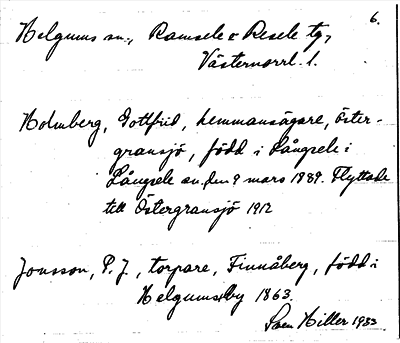 6.
Helgums sn., Ramsele & Resele tg,
Västernorrl. l.
Holmberg, Gottfrid, hemmansägare, Öster-
gransjö, född i Långsele i
Långsele sn. den 9 mars 1889. Flyttade
till Östergransjö 1912
Jonsson, P. J., torpare, Finnåberg, född i
Helgums by 1863.
Sven Hiller 1933